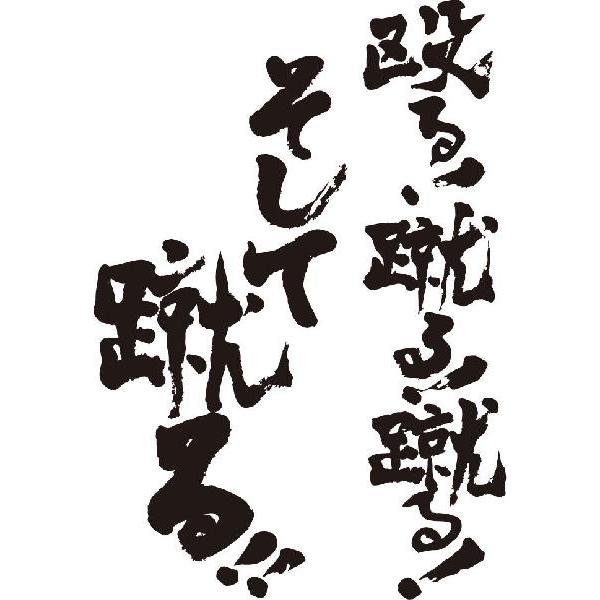 殴る！蹴る！蹴る！
そして
蹴る！！